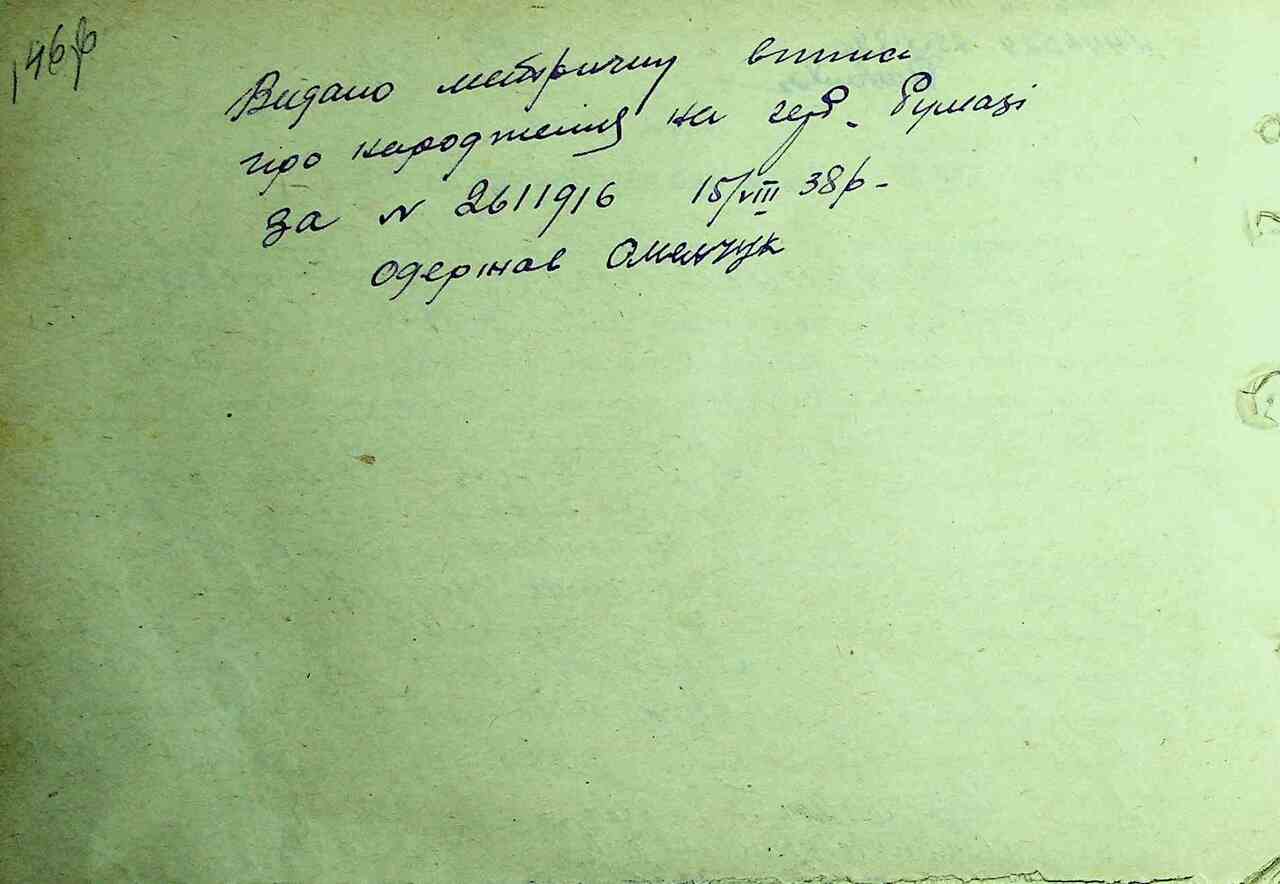 146
Видано метричну випис
про народження на гер. Румазі
за N 2611916 15/VIII 38р-
одержав Омелчук